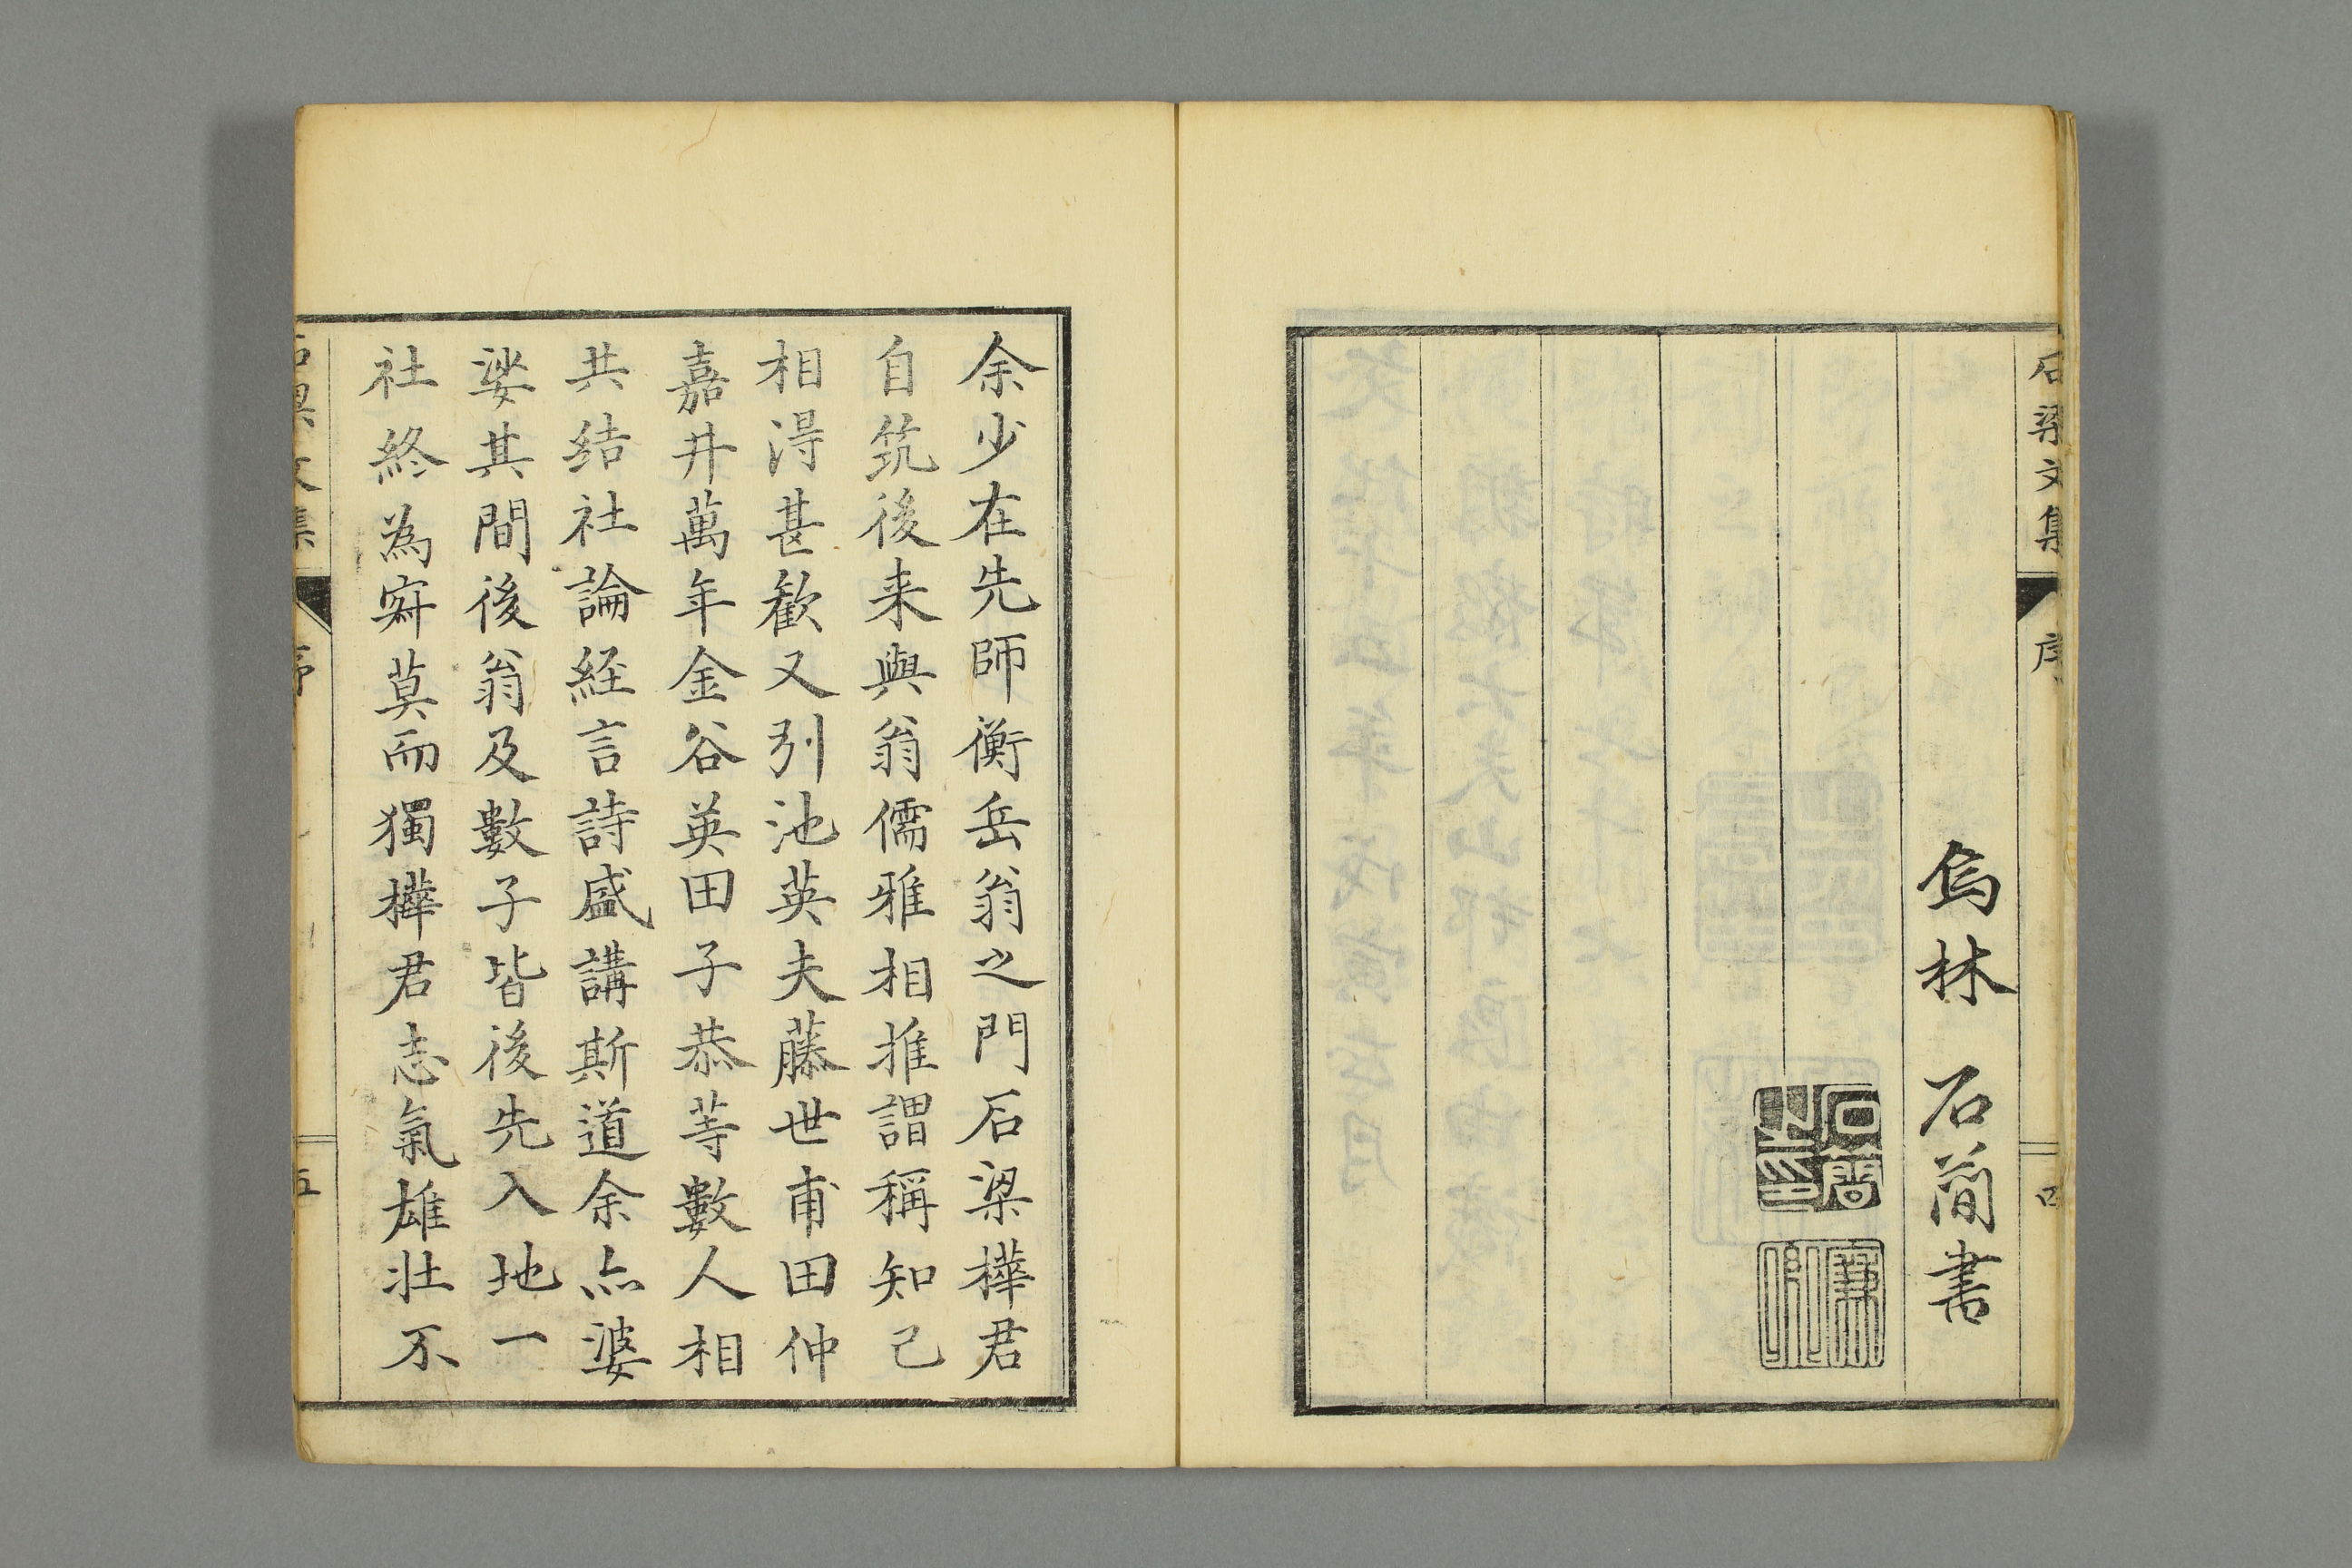 石梁文集
序
四
烏林 石蕳書
余少在先師衡岳翁之門石梁樺君
自筑後来與翁儒雅相推謂稱知己
相得甚歓又引池英夫藤世甫田仲
嘉井萬年金谷英田子恭等數人相
共结社論経言詩盛講斯道余亦婆
娑其間後翁及數子皆後先入地一
社終為寂莫而獨樺君志氣雄壮不
石梁文集
序
五